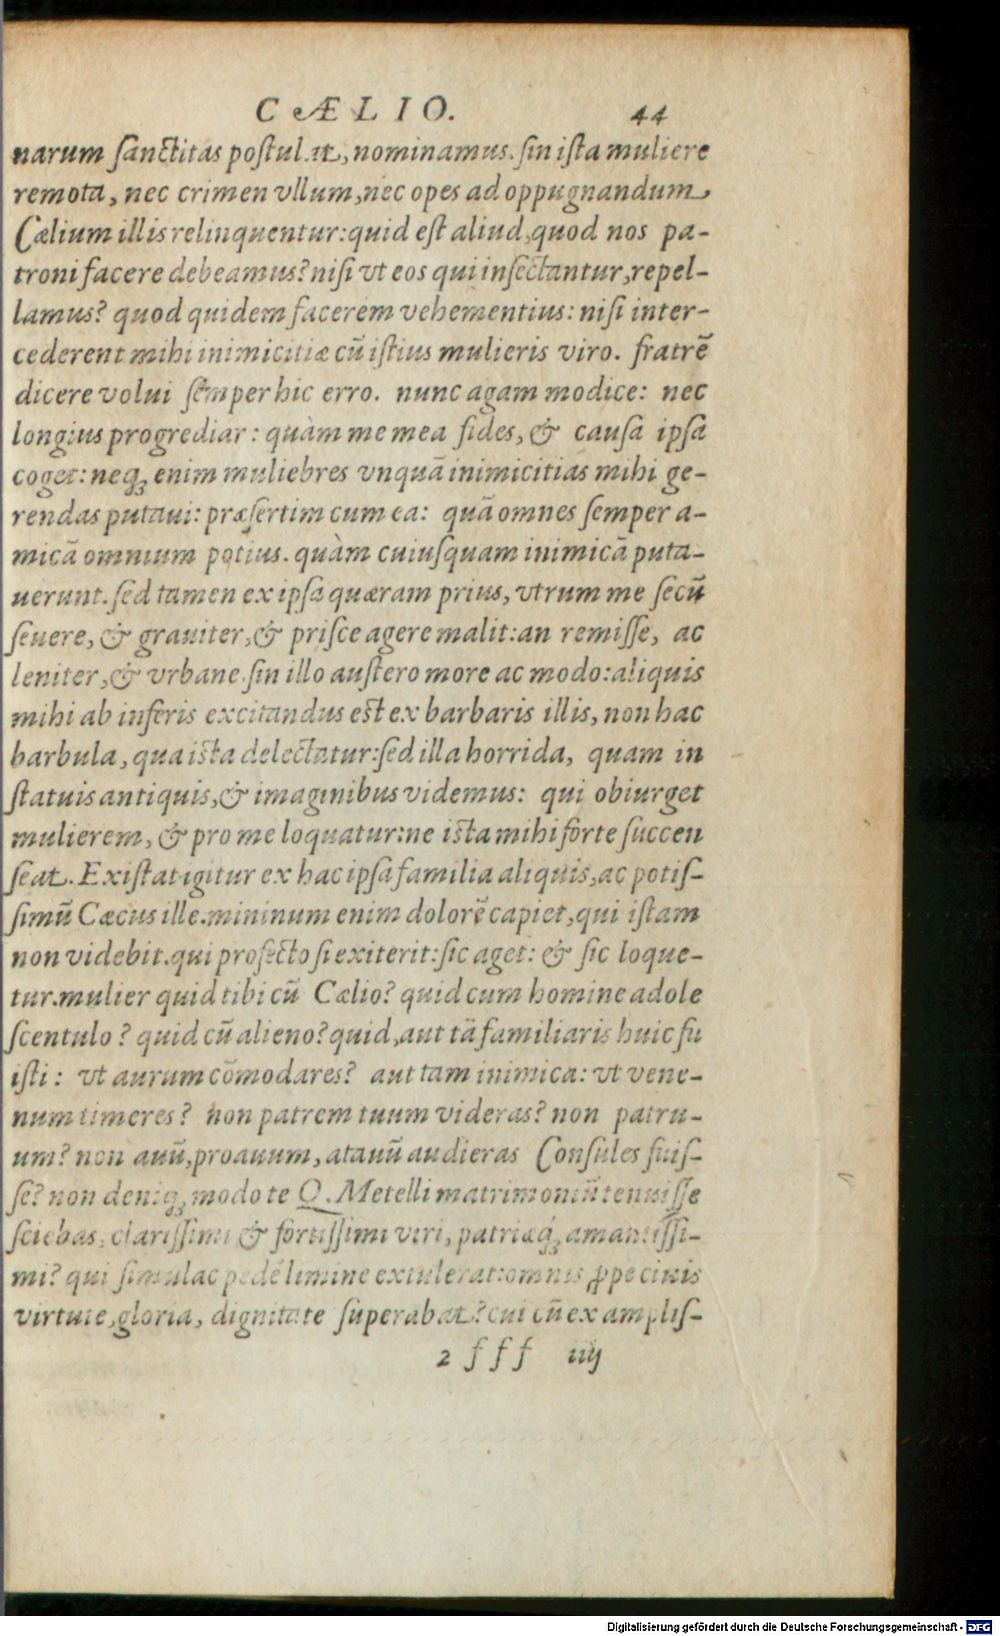 CÆLIO. 44
narum sanctitas postulat, nominamus. sin ista muliere
remota, nec crimen vllum, nec opes ad oppugnandum
Cælium illis relinquentur: quid est aliud, quod nos pa-
troni facere debeamus? nisi vt eos qui insectantur, repel-
lamus? quod quidem facerem vehementius: nisi inter-
cederent mihi inimicitiæ cũ istius mulieris viro. fratrẽ
dicere volui semper hic erro. nunc agam modice: nec
longius progrediar: quàm me mea fides, & causa ipsa
coget: neq; enim muliebres vnquã inimicitias mihi ge-
rendas putaui: præsertim cum ea: quã omnes semper a-
micã omnium potius. quàm cuiusquam inimicã puta-
uerunt. sed tamen ex ipsa quæram prius, vtrum me secũ
seuere, & grauiter, & prisce agere malit: an remisse, ac
leniter, & vrbane. sin illo austero more ac modo: aliquis
mihi ab inferis excitandus est ex barbaris illis, non hac
barbula, qua ista delectatur: sed illa horrida, quam in
statuis antiquis, & imaginibus videmus: qui obiurget
mulierem, & pro me loquatur: ne ista mihi forte succen
seat. Existat igitur ex hac ipsa familia aliquis, ac potis-
simũ Cæcus ille. mininum enim dolorẽ capiet, qui istam
non videbit. qui profecto si exiterit: sic aget: & sic loque-
tur. mulier quid tibi cũ Cælio? quid cum homine adole
scentulo? quid cũ alieno? quid, aut tã familiaris huic fu
isti: vt aurum cõmodares? aut tam inimica: vt vene-
num timeres? non patrem tuum videras? non patru-
um? non auũ, proauum, atauũ audieras Consules fuis-
se? non deniq; modo te Q. Metelli matrimoniũ tenuisse
sciebas, clarissimi & fortissimi viri, patriæq́; amantissi-
mi? qui simulac pedẽ limine extulerat: omnis ꝓpe ciuis
virtute, gloria, dignitate superabat? cui cũ ex amplis-
2 fff iiij
Digitalisierung gefördert durch die Deutsche Forschungsgemeinschaft - DFG